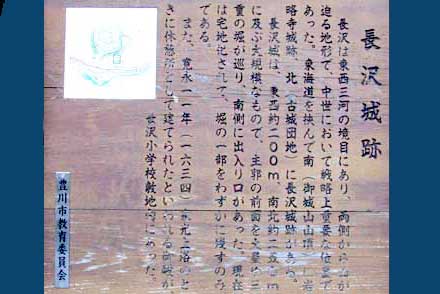 長沢城跡
長沢は東西三河の境目にあり、両側から山が
迫る地形で、中世において戦略上重要な位置で
あった。東海道を挟んで南（御城山山頂）に岩
略寺城跡、北（古城団地）に長沢城跡がある。
長沢城は、東西約二〇〇m、南北約二五〇m
に及ぶ大規模なもので、主郭の前面を
重の堀が巡り、南側に出入り口があった。現在
は宅地化されて、堀の一部をわずかに残すのみ
である。
また、寛永一一年（一六三四）
きに休憩所として建てられたといわれる御殿が、
長沢小学校敷地内にあった。
豊川市教育委員会